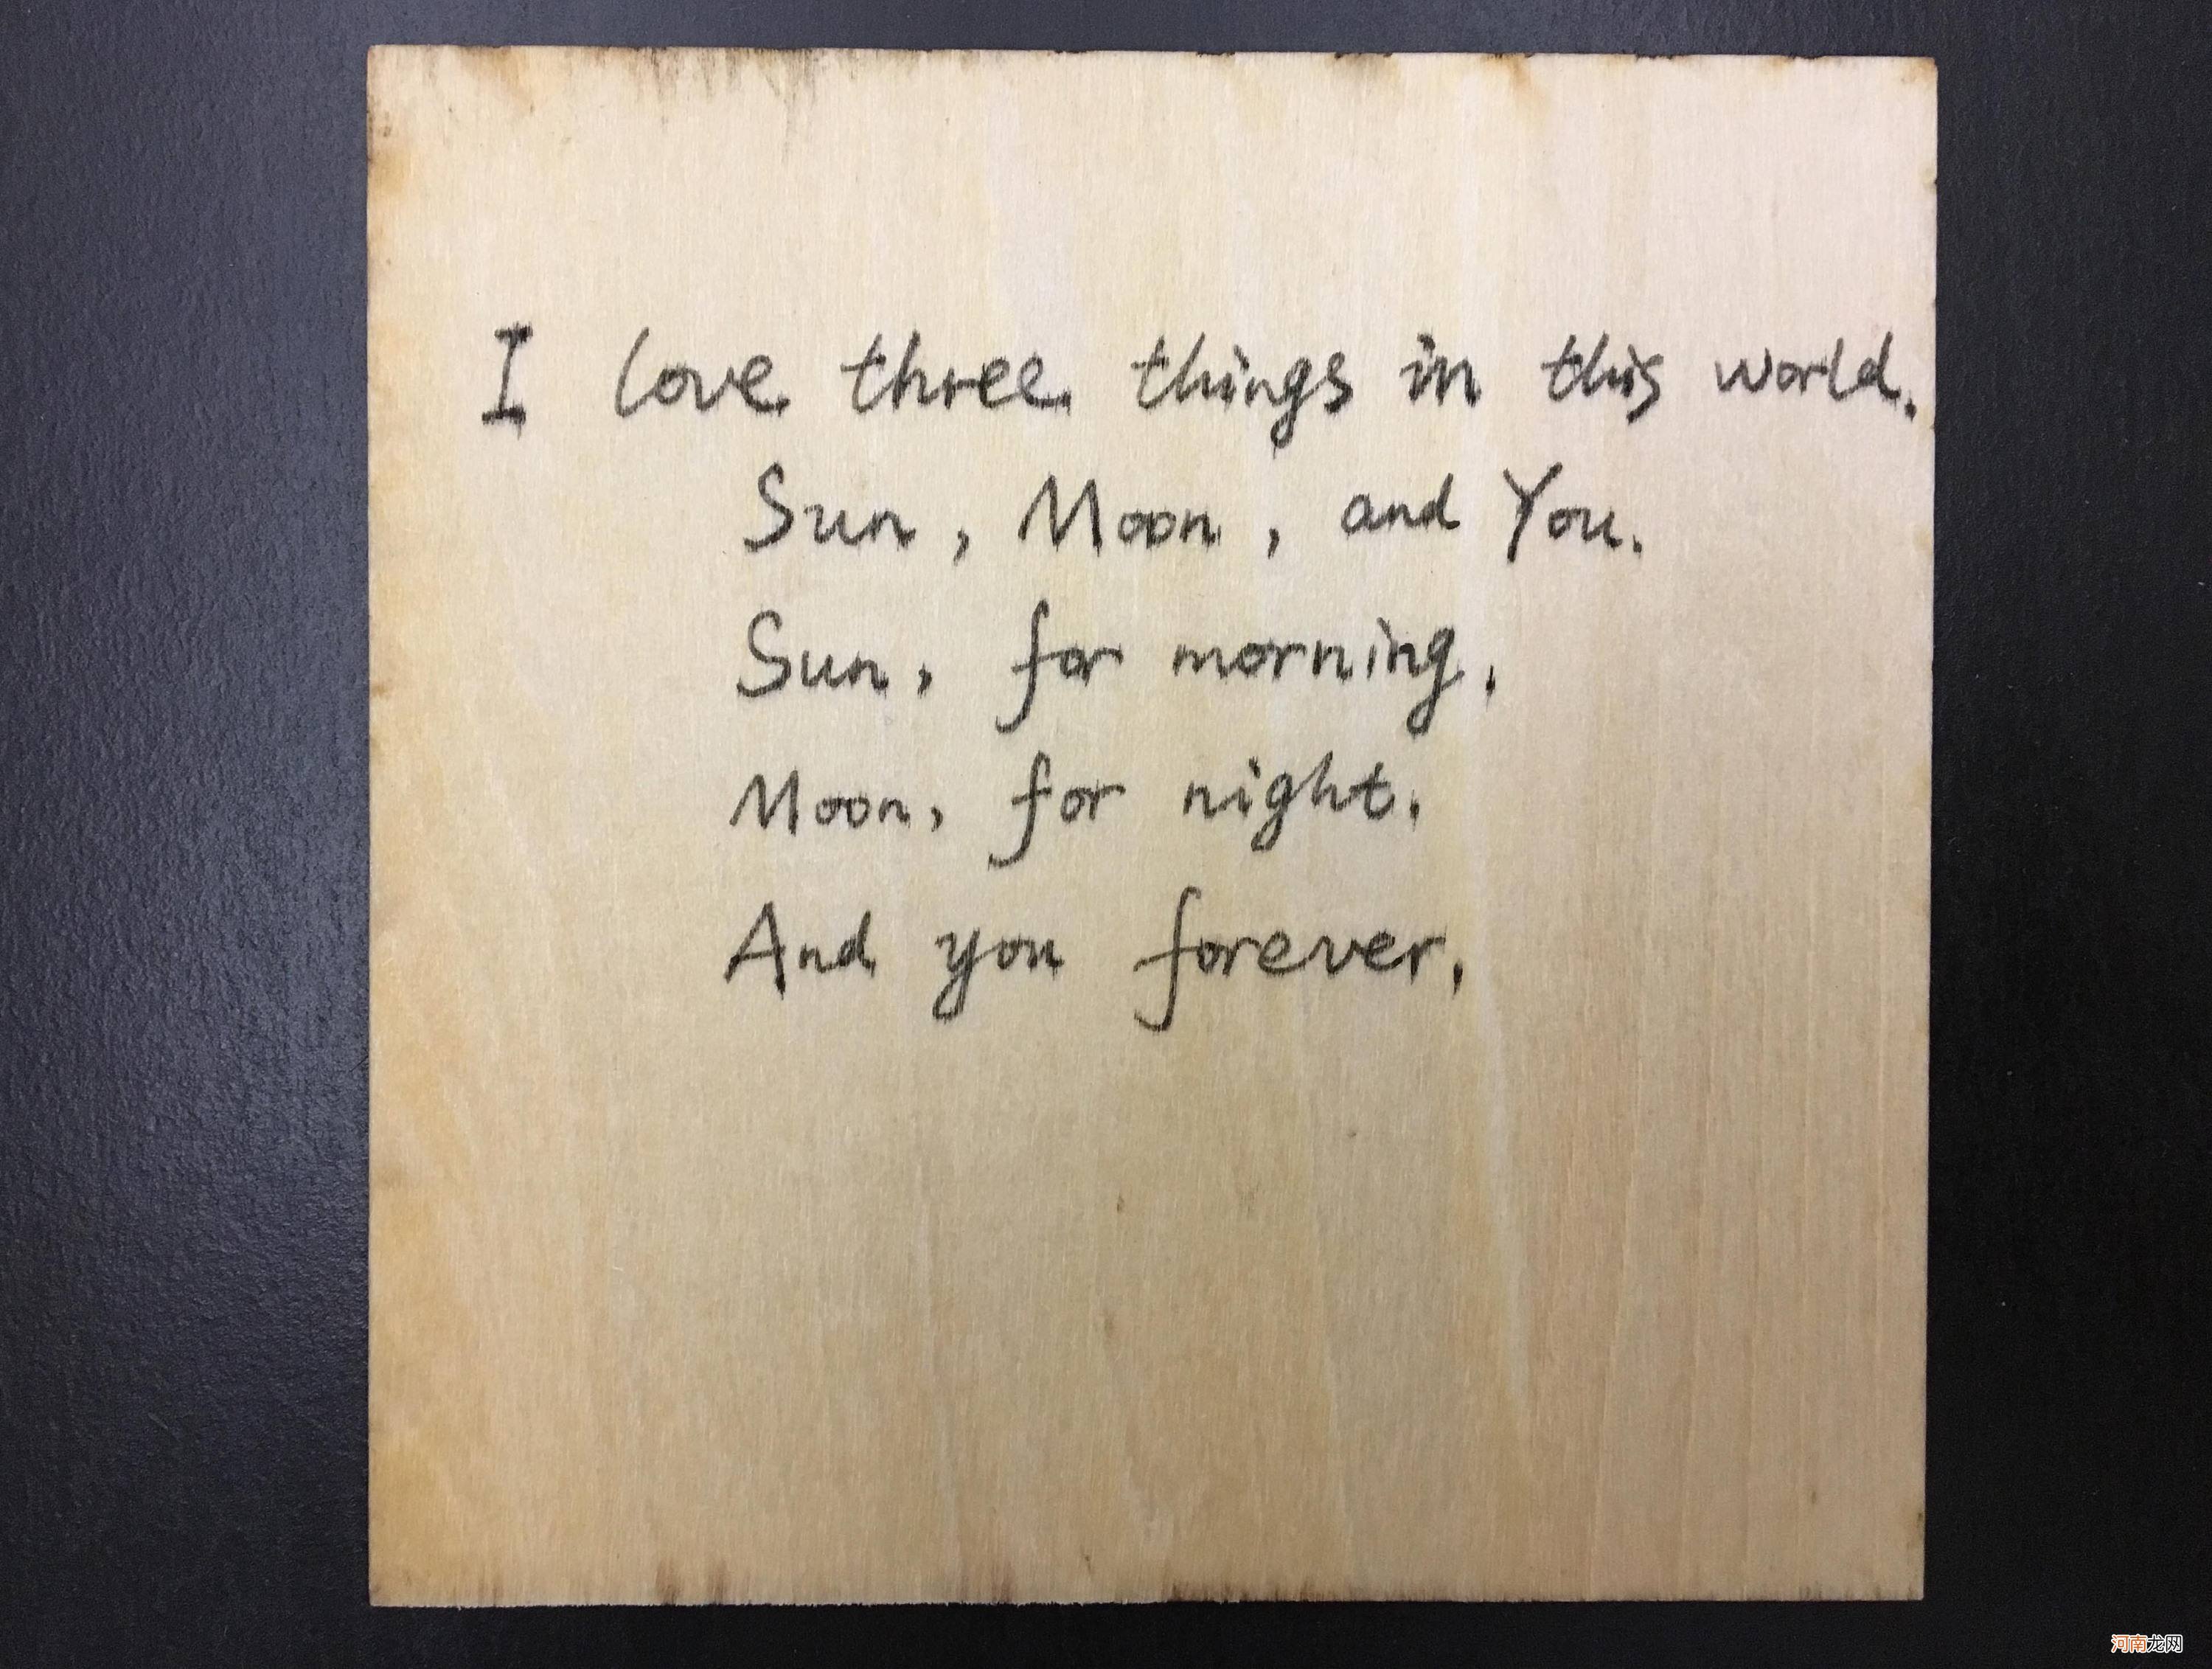 I love three things in this world.
Sun, Moon, and You.
Sun, for morning,
Moon, for night,
And you forever,
河南龙网